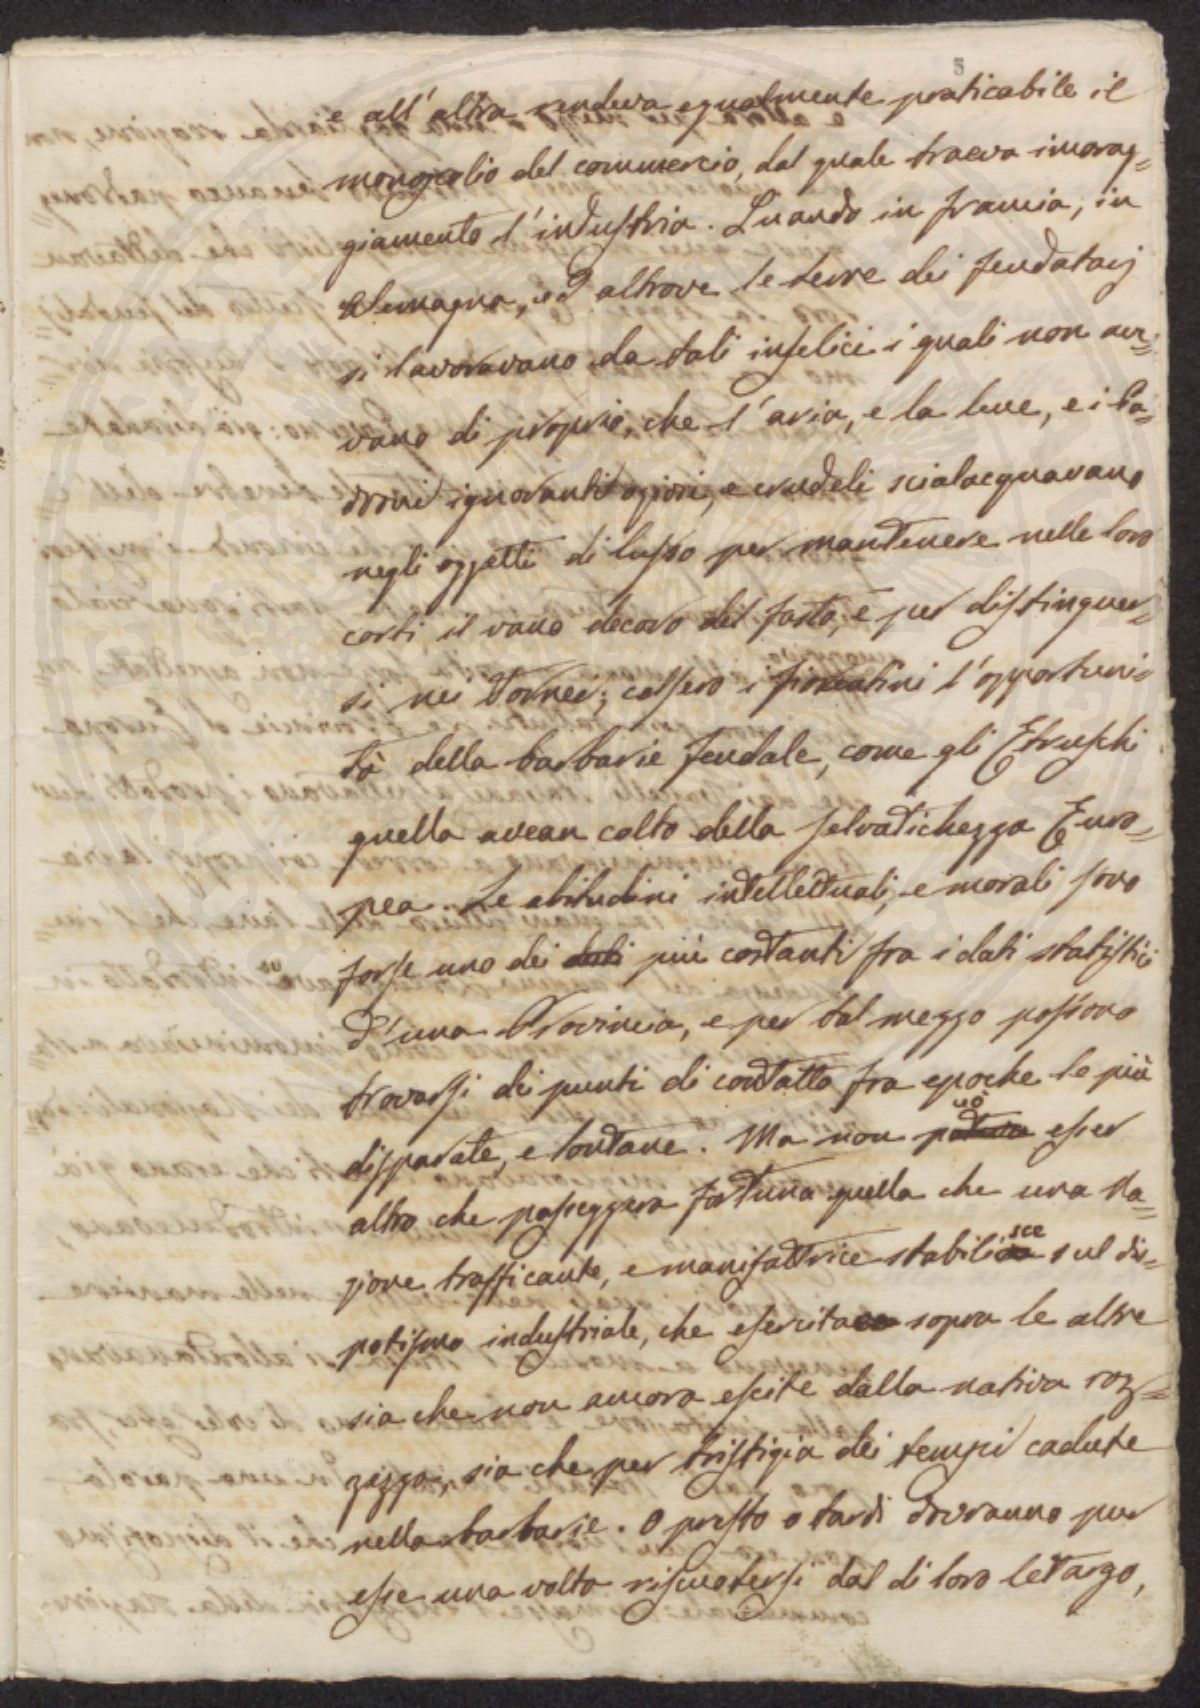 5
e all'altra rendeva egualmente praticabile il
monopolio del commercio, dal quale traeva incorag=
giamento l'industria. Quando in francia, in
Alemagna, ed altrove le terre dei feudatarj
si lavoravano da tali infelici i quali non ave=
vano di proprio, che l'aria, e la luce, e i Pa=
droni ignoranti oziosi, e crudeli scialacquavano
negli oggetti di lusso per mantenere nelle loro
corti il vano decoro del fasto, e per distinguer=
si nei Tornei; colsero i fiorentini l'opportuni=
tà della barbarie feudale, come gli Etruschi
quella avean colto della selvatichezza Euro=
pea. Le abitudini intellettuali, e morali sono
forse uno dei dati più costanti fra i dati statistici
d'una Provincia, e per tal mezzo possono
trovarsi dei punti di contatto fra epoche le più
disparate, e lontane. Ma non può esser
altro che passeggera fortuna quella che una Na=
zione trafficante, e manifattrice stabilisce sul dis=
potismo industriale, che esercita sopra le altre
sia che non ancora escite dalla nativa roz=
zezza, sia che per tristizia dei tempi cadute
nella barbarie. O presto o tardi dovranno pur
esse una volta riscuotersi dal di loro letargo,